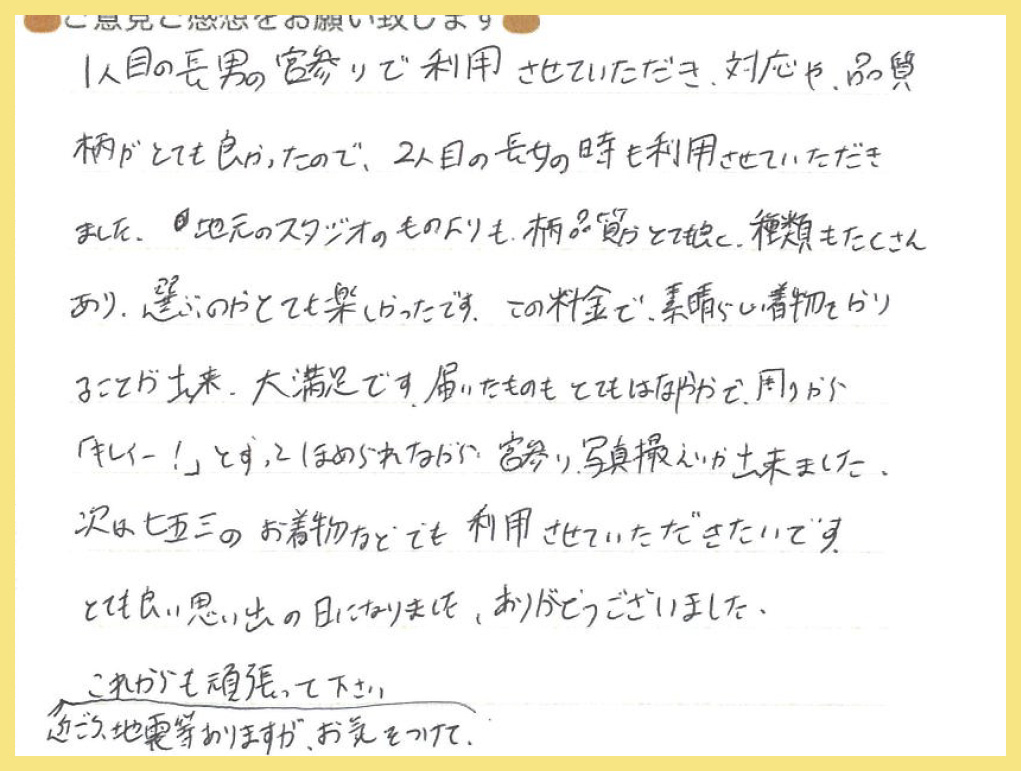 ご意見ご感想をお願い致します
1人目の長男の宮参りで利用させていただき、対応や、品質
柄がとても良かったので、2人目の長女の時も利用させていただき
ました。地元のスタジオのものよりも、柄品質がとても良く、種類もたくさん
あり、選ぶのがとても楽しかったです。この料金で、素晴らしい着物をかり
ることが出来、大満足です。届いたものもとてもはなやかで、周りから
「キレイー!」とずっとほめられながら宮参り、写真撮えいが出来ました。
次は七五三のお着物などでも利用させていただきたいです。
とても良い思い出の日になりました。ありがとうございました。
これからも頑張って下さい
近ごろ、地震等ありますが、お気をつけて。